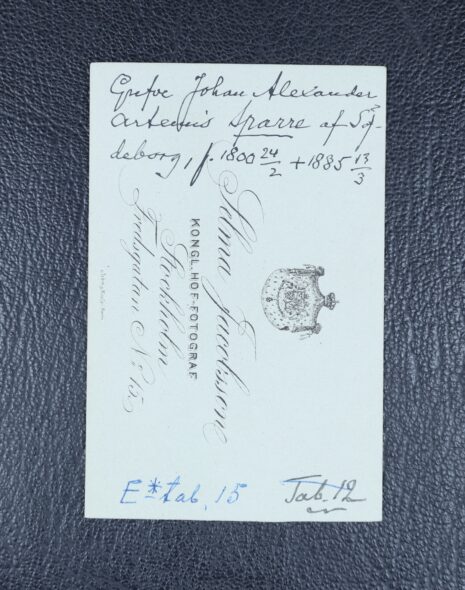 Grefve Johan Alexander
Artemis Sparre af Sö-
deborg, f. 1800 24/2 + 1885 13/3
Selma Jacobsson
KONGL. HOF-FOTOGRAF
Stockholm
Fredsgatan No 15.
E* tab. 15
Tab. 12